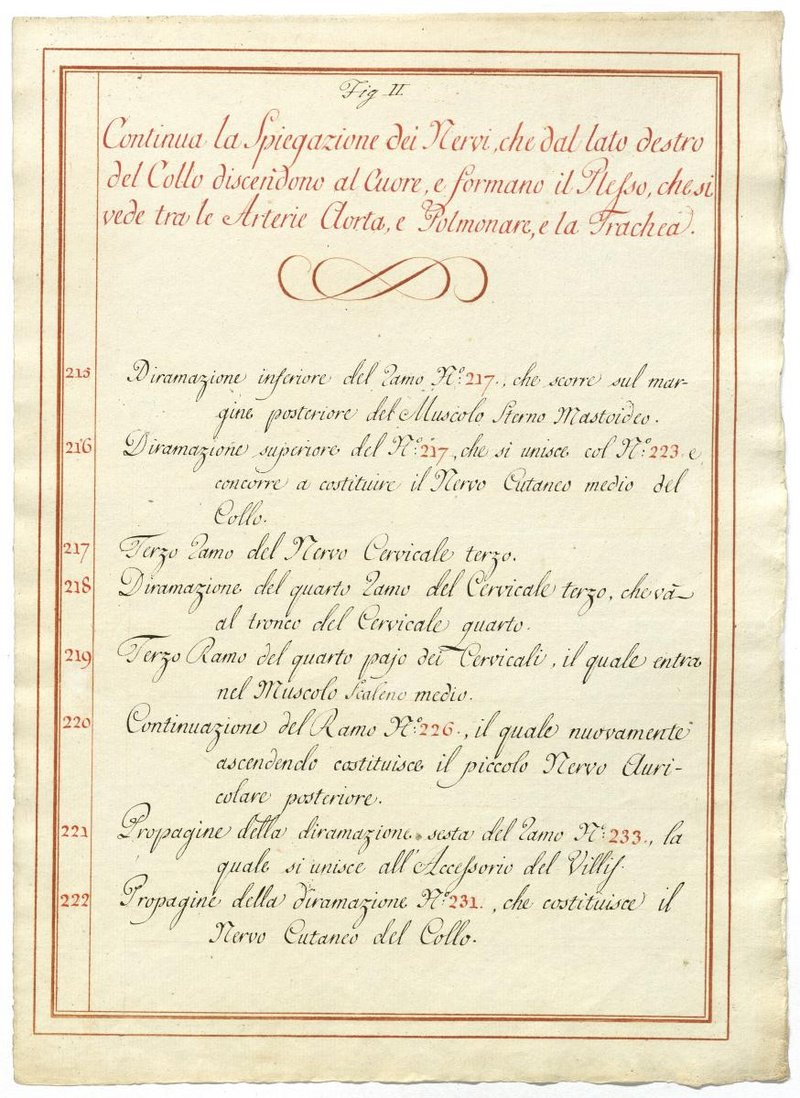 Fig II.
Continua la Spiegazione dei Nervi, che dal lato destro
del Collo discendono al Cuore, e formano il Plesso, che si
vede tra le Arterie Aorta, e Polmonare, e la Trachea.
215 Diramazione inferiore del Ramo N.º 217., che scorre sul mar-
gine posteriore del Muscolo Sterno Mastoideo.
216 Diramazione superiore del N.º 217., che si unisce col N.º 223. e
concorre a costituire il Nervo Cutaneo medio del
Collo.
217 Terzo Ramo del Nervo Cervicale terzo.
218 Diramazione del quarto Ramo del Cervicale terzo, che và
al tronco del Cervicale quarto.
219 Terzo Ramo del quarto pajo dei Cervicali, il quale entra
nel Muscolo Scaleno medio.
220 Continuazione del Ramo N.º 226., il quale nuovamente
ascendendo costituisce il piccolo Nervo Auri-
colare posteriore.
221 Propagine della diramazione sesta del Ramo N.º 233., la
quale si unisce all'Accessorio del Villis.
222 Propagine della diramazione N.º 231., che costituisce il
Nervo Cutaneo del Collo.